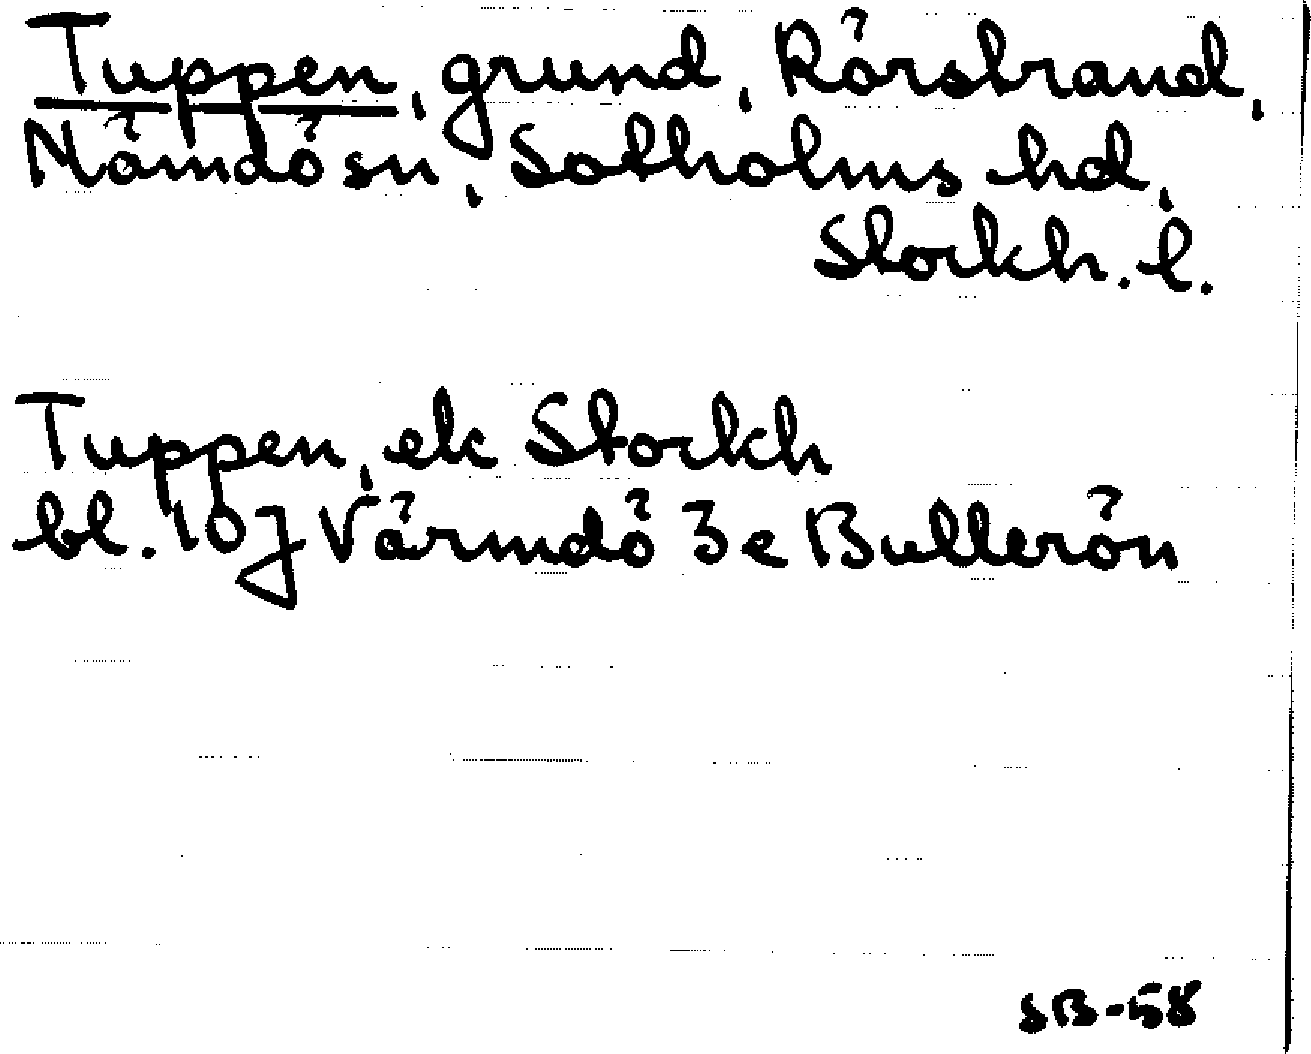 Tuppen, grund, Rörstrand,
Nämdö sn, Sotholms hd,
Stockh. l.
Tuppen, ek Stockh
bl. 10J Värmdö 3e Bullerön
SB-58